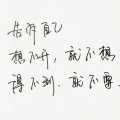 告诉自己
想不开，就不想
得不到，就不要。